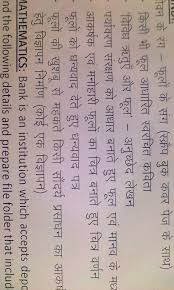 के रंग – फूलों के संग (स्क्रैप बुक कवर पेज के साथ)
किसी भी फूल आधारित स्वरचित कविता
विविध ऋतुएँ और फूल – अनुच्छेद लेखन
पर्यावरण संरक्षण को आधार बनाते हुए फूल एवं मानव के मध्य
आकर्षक एवं मनोहारी फूलों का चित्र बनाते हुए चित्र वर्णन
फूलों को धन्यवाद देते हुए धन्यवाद पत्र
फूलों की खुशबू से महकते किसी सौंदर्य प्रसाधन का
हेतु विज्ञापन निर्माण (कोई एक विज्ञापन)
MATHEMATICS: Bank is an institution which accepts depo
nd the following details and prepare file folder that includ